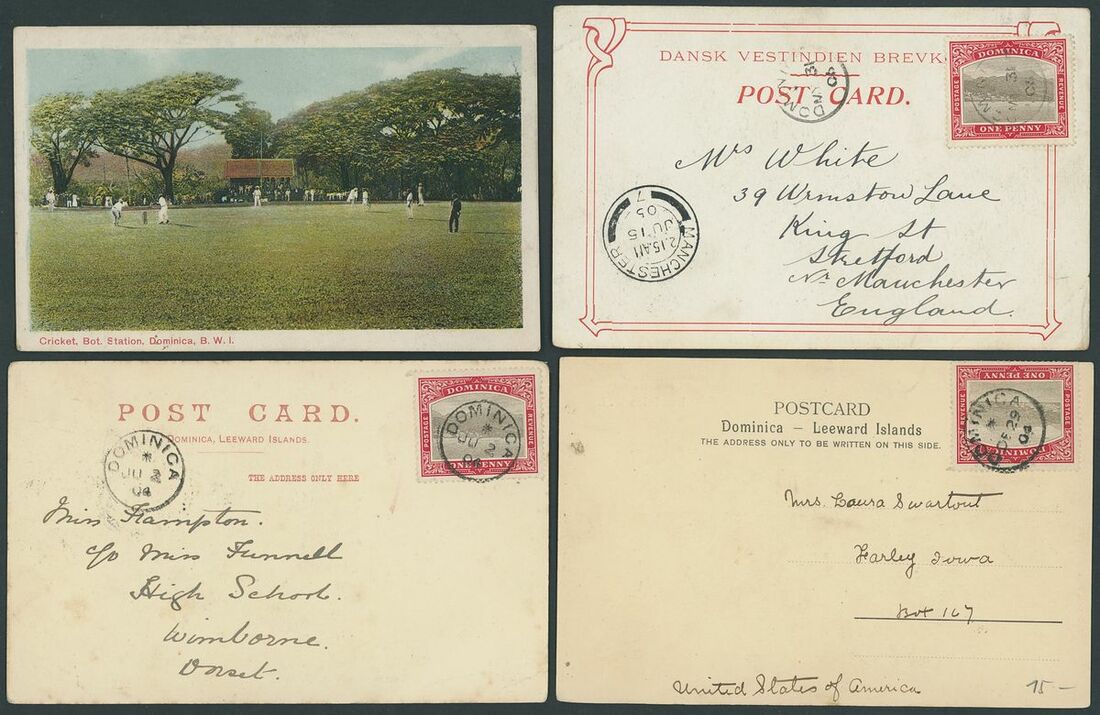 Cricket, Bot. Station, Dominica, B. W. I.
DANSK VESTINDIEN BREVK
POST CARD.
DOMINICA
POSTAGE
REVENUE
ONE PENNY
MANCHESTER
2.15 AM
JU 15
05
7
Mrs White
39 Urmston Lane
King St
Stretford
Nr Manchester
England.
POST CARD.
DOMINICA, LEEWARD ISLANDS.
THE ADDRESS ONLY HERE
DOMINICA
JU 2
04
DOMINICA
POSTAGE
REVENUE
ONE PENNY
DOMINICA
JU 2
04
Miss Hampton.
c/o Miss Funnell
High School.
Wimborne.
Dorset.
POSTCARD
Dominica — Leeward Islands
THE ADDRESS ONLY TO BE WRITTEN ON THIS SIDE.
DOMINICA
POSTAGE
REVENUE
ONE PENNY
DOMINICA
DE 29
04
Mrs. Laura Swartout
Farley Iowa
Box 167
United States of America
15 –